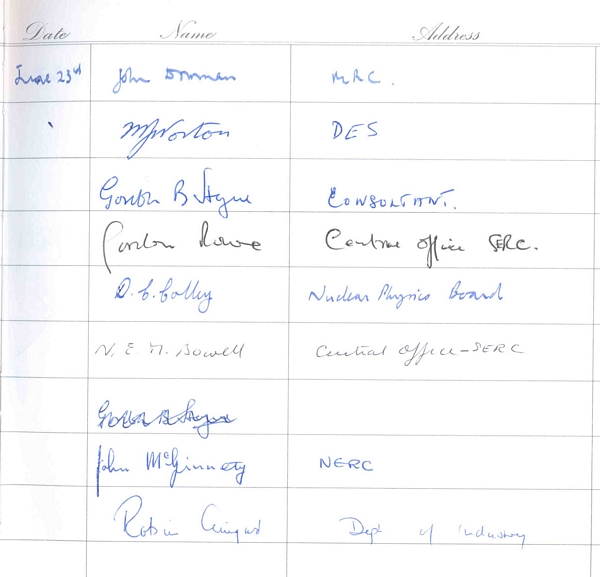 Date Name Address
June 23rd John MRC.
MJ Norton DES
Gordon B Hayne CONSULTANT.
Gordon Rowe Central office SERC.
D. C. Colley Nuclear Physics Board
N. E. M. Bowell Central Office - SERC
John McGinnety NERC
Robin Dept of Industry